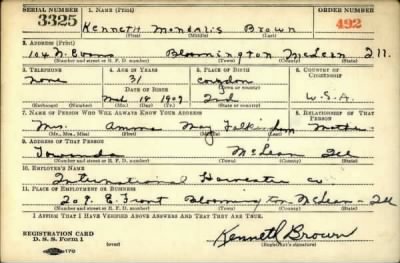 SERIAL NUMBER 1. NAME (Print) ORDER NUMBER
3325 Kenneth Brown 492
(First) (Middle) (Last)
2. ADDRESS (Print)
104 N. Evans Bloomington McLean Ill.
(Number and street or R. F. D. number) (Town) (County) (State)
3. TELEPHONE 4. AGE IN YEARS 5. PLACE OF BIRTH 6. COUNTRY OF CITIZENSHIP
none 31
DATE OF BIRTH (Town or county)
18 1909 Ind U.S.A.
(Exchange) (Number) (Mo.) (Day) (Yr.) (State or country)
7. NAME OF PERSON WHO WILL ALWAYS KNOW YOUR ADDRESS 8. RELATIONSHIP OF THAT PERSON
Mrs. May Mother
(Mr., Mrs., Miss) (First) (Middle) (Last)
9. ADDRESS OF THAT PERSON
Towanda McLean Ill
(Number and street or R. F. D. number) (Town) (County) (State)
10. EMPLOYER'S NAME
International Harvester Co
11. PLACE OF EMPLOYMENT OR BUSINESS
209 E. Front Bloomington McLean Ill
(Number and street or R. F. D. number) (Town) (County) (State)
I AFFIRM THAT I HAVE VERIFIED ABOVE ANSWERS AND THAT THEY ARE TRUE.
REGISTRATION CARD
D. S. S. Form 1 (over) Kenneth Brown
(Registrant's signature)